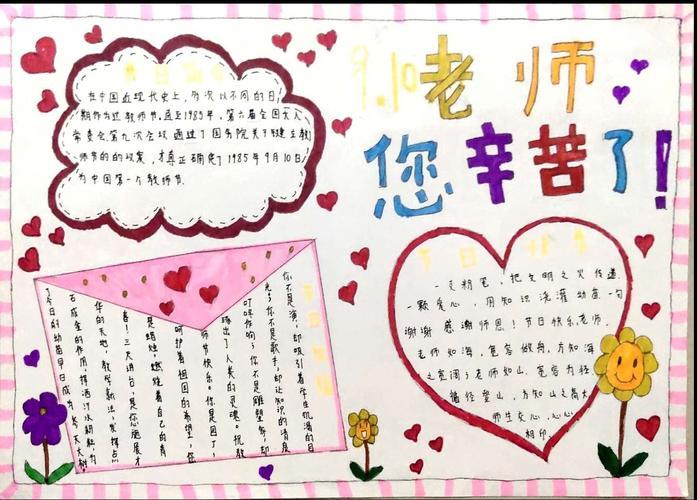 9.10老师
您辛苦了!
在中国近现代史上,多次以不同的日
期作为过教师节,直至1985年,第六届全国人大
常委会第九次会议通过了国务院关于建立教
师节的的议案,才真正确定了1985年9月10日
为中国第一个教师节.
你不是演,却吸引着学生饥渴的目
光了你不是歌手,却让知识的清泉
叮咚作响了你不是雕塑家,却
塑出了人类的灵魂。祝教
师节快乐。你是园丁,
呵护着祖国的希望,您
是蜡烛,燃烧着自己的青
春!三尺讲台,是你施展才
华的天地,教学新法,发挥点
石成金的作用,挥洒汗水耕耘,为
了今日的幼苗早日成为参天大树.
节日快乐
一支粉笔,把文明之火传递
一颗爱心,用知识浇灌幼苗一句
谢谢 感谢师恩!节日快乐,老师。
老师如海,宽容做舟,方知海
之宽阔了老师如山,宽容为径
循径登山,方知山之高大
师生交心,心心
相印。